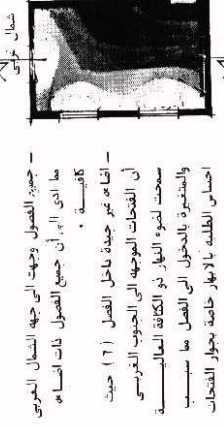 شمال غربى
– جميع الفصول وجهت الى جهه الشمال الغربى
مما ادى الى أن جميع الفصول ذات اضاءه
كافيـــة .
– اضاءه غير جيدة داخل الفصل (٦) حيث
أن الفتحات الموجهه الى الجنوب الغربـــى
سمحت لضوء النهار ذو الكثافة العاليـــة
والمتغيرة بالدخول الى الفصل مما سبـــب
احساس الطلبه بالابهار خاصة بجوار الفتحات